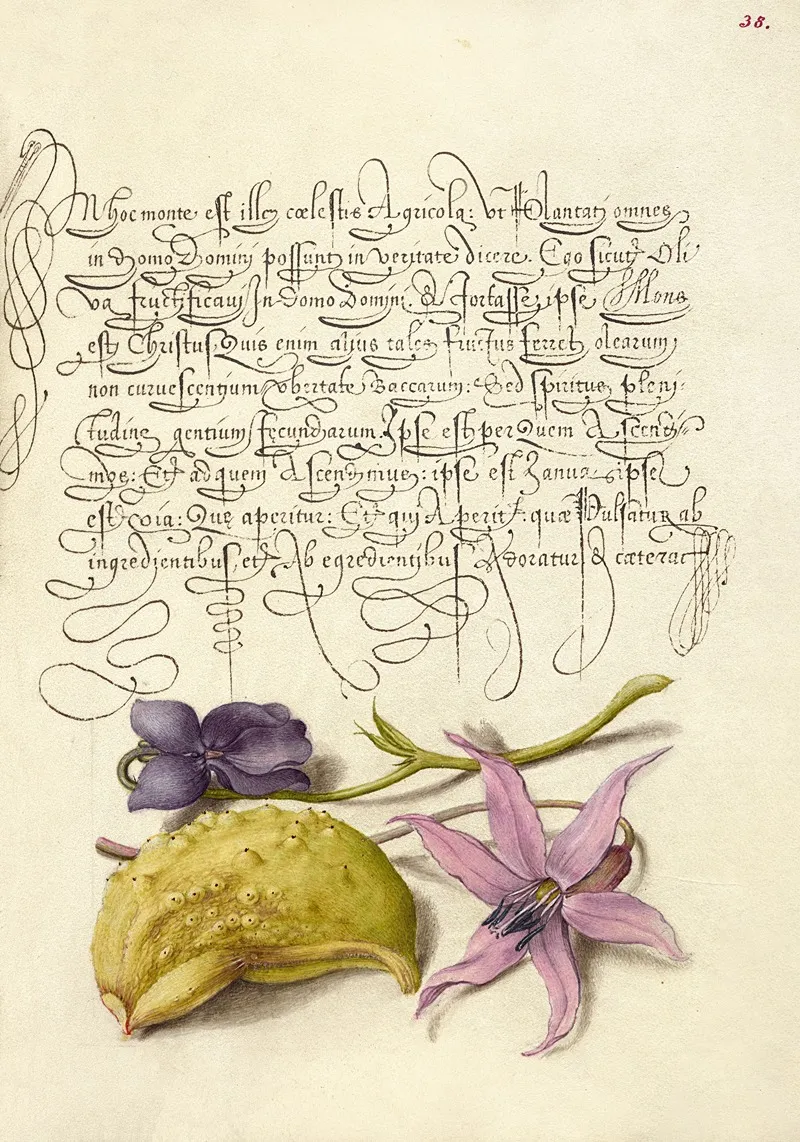 38.
In hoc monte est ille cœlestis Agricola: Ut Plantati omnes
in Domo Domini possunt in veritate dicere. Ego sicut Oli
va fructificavi In Domo Domini. & Fortasse ipse Mons
est Christus. Quis enim alius tales fructus ferret olearum
non curvescentium ubertate Baccarum: Sed spiritus pleni-
tudine gentium fecundarum. Ipse est per Quem Ascendi-
mus: Et ad quem Ascendimus: ipse est Ianua ipse
est via: Quę aperitur: Et qui Aperit: quæ Pulsatur ab
ingredientibus, et Ab egredientibus Adoratur & cætera